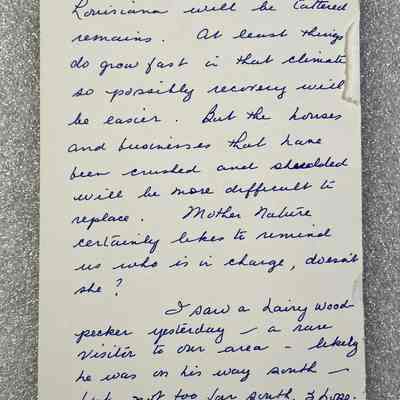 Louisiana will be tattered
remains. At least things
do grow fast in that climate
so possibly recovery will
be easier. But the houses
and businesses that have
been crushed and shredded
will be more difficult to
replace. Mother Nature
certainly likes to remind
us who is in charge, doesn't
she?
I saw a hairy wood-
pecker yesterday – a rare
visitor to our area – likely
he was on his way south –
but not too far south, I hope.